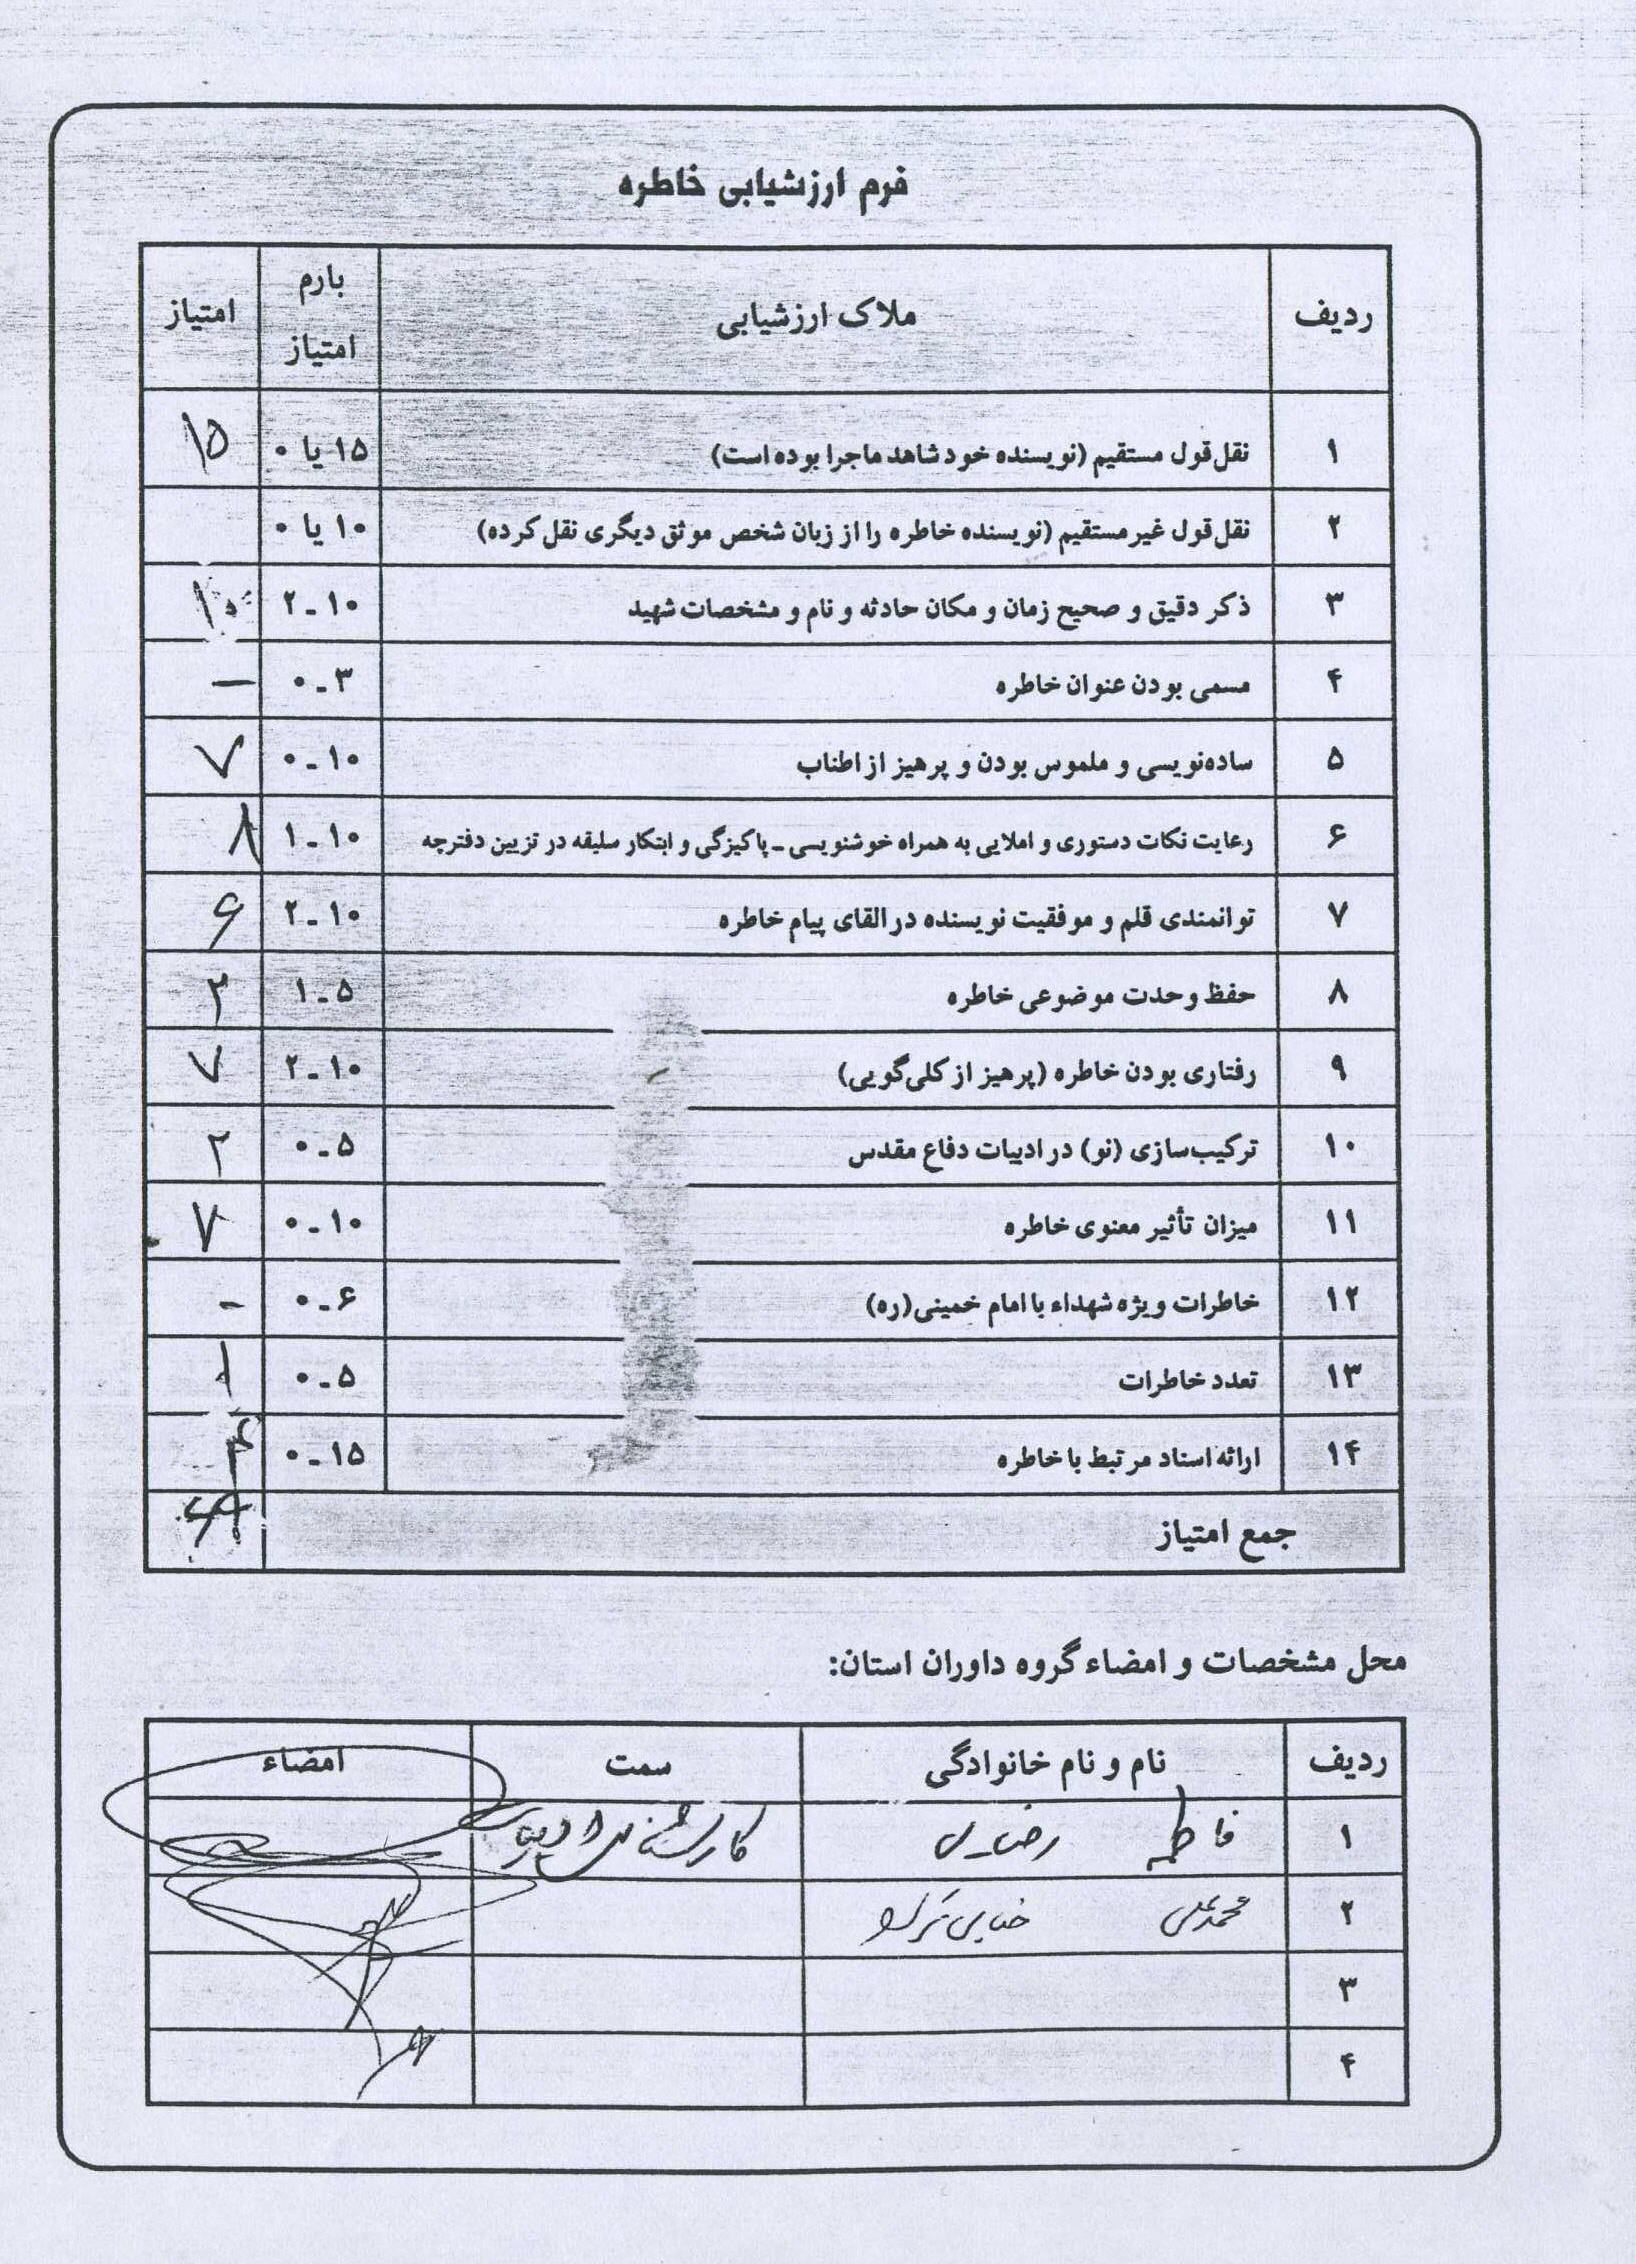 فرم ارزشیابی خاطره
ردیف ملاک ارزشیابی بارم امتیاز امتیاز
۱ نقل‌قول مستقیم (نویسنده خود شاهد ماجرا بوده است) ۱۵ یا ۰ ۱۵
۲ نقل‌قول غیر مستقیم (نویسنده خاطره را از زبان شخص موثق دیگری نقل کرده) ۱۰ یا ۰
۳ ذکر دقیق و صحیح زمان و مکان حادثه و نام و مشخصات شهید ۱۰ ـ ۲ ۱۰
۴ مسمی بودن عنوان خاطره ۳ ـ ۰ —
۵ ساده‌نویسی و ملموس بودن و پرهیز از اطناب ۱۰ ـ ۰ ۷
۶ رعایت نکات دستوری و املایی به همراه خوشنویسی ـ پاکیزگی و ابتکار سلیقه در تزیین دفترچه ۱۰ ـ ۱ ۸
۷ توانمندی قلم و موفقیت نویسنده در القای پیام خاطره ۱۰ ـ ۲ ۶
۸ حفظ وحدت موضوعی خاطره ۵ ـ ۱ ۳
۹ رفتاری بودن خاطره (پرهیز از کلی‌گویی) ۱۰ ـ ۲ ۷
۱۰ ترکیب‌سازی (نو) در ادبیات دفاع مقدس ۵ ـ ۰ ۲
۱۱ میزان تأثیر معنوی خاطره ۱۰ ـ ۰ ۷
۱۲ خاطرات ویژه شهداء با امام خمینی (ره) ۶ ـ ۰ -
۱۳ تعدد خاطرات ۵ ـ ۰ ۱
۱۴ ارائه اسناد مرتبط با خاطره ۱۵ ـ ۰
جمع امتیاز
محل مشخصات و امضاء گروه داوران استان:
ردیف نام و نام خانوادگی سمت امضاء
۱ فاطمه رضایی کارشناس ادبیات
۲ محمدعلی
۳
۴